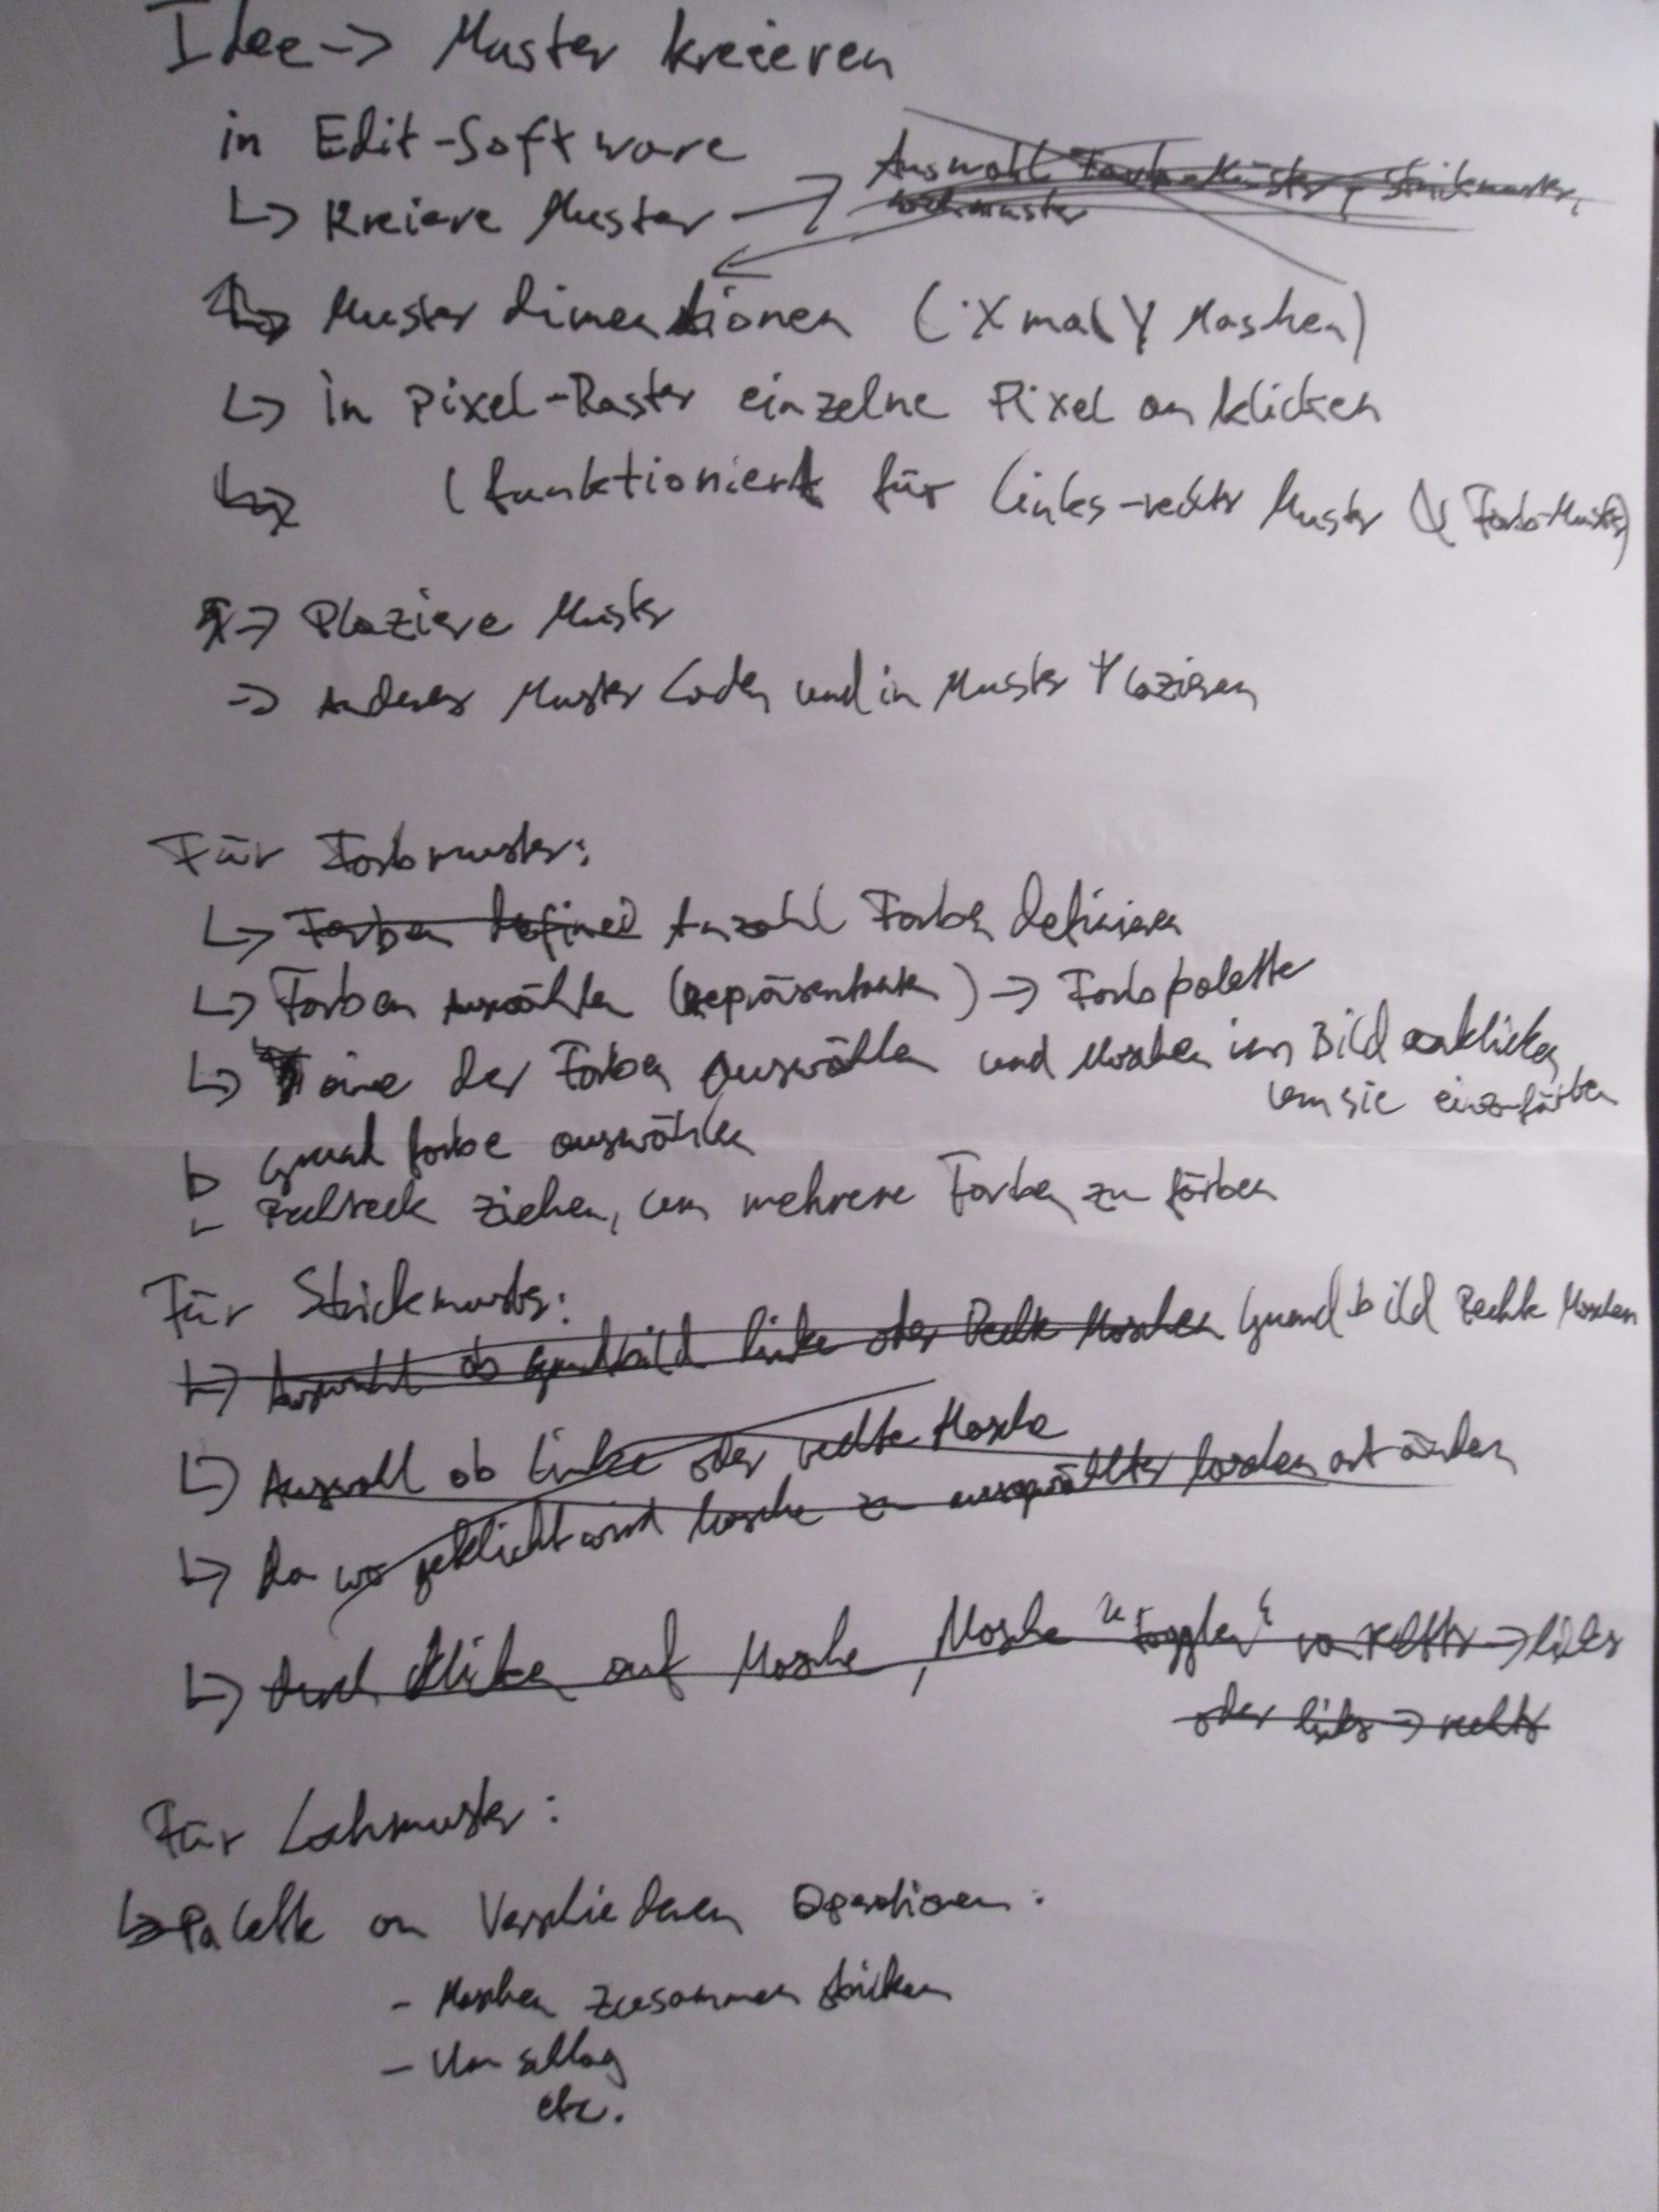 Idee -> Muster kreieren
in Edit-Software
↳ Kreiere Muster → Auswahl Farb-Muster, Strickmuster,
Lochmuster
↳ Muster dimensionen (X mal Y Maschen)
↳ in Pixel-Raster einzelne Pixel anklicken
(funktioniert für links-rechts Muster & Farb-Muster)
-> Plaziere Muster
-> Anderes Muster laden und in Muster Plazieren
Für Farbmuster:
↳ Farben definei Anzahl Farben definieren
↳ Farben auswählen (Repräsentanten) -> Farbpalette
↳ eine der Farben auswählen und Maschen im Bild anklicken
um sie einzufärben
↳ Grund farbe auswählen
Rechteck ziehen, um mehrere Farben zu färben
Für Strickmuster:
↳ Auswahl ob Grundbild linke oder Rechte Maschen Grundbild Rechte Maschen
↳ Auswahl ob linke oder rechte Masche
↳ Da wo geklickt wird Masche zu ausgewählter Maschenart ändern
↳ Durch Klicken auf Masche, Masche "togglen" von rechts -> links
oder links -> rechts
Für Lochmuster:
↳ Palette an Verschiedenen Operationen:
- Maschen zusammen stricken
- Umschlag
etc.